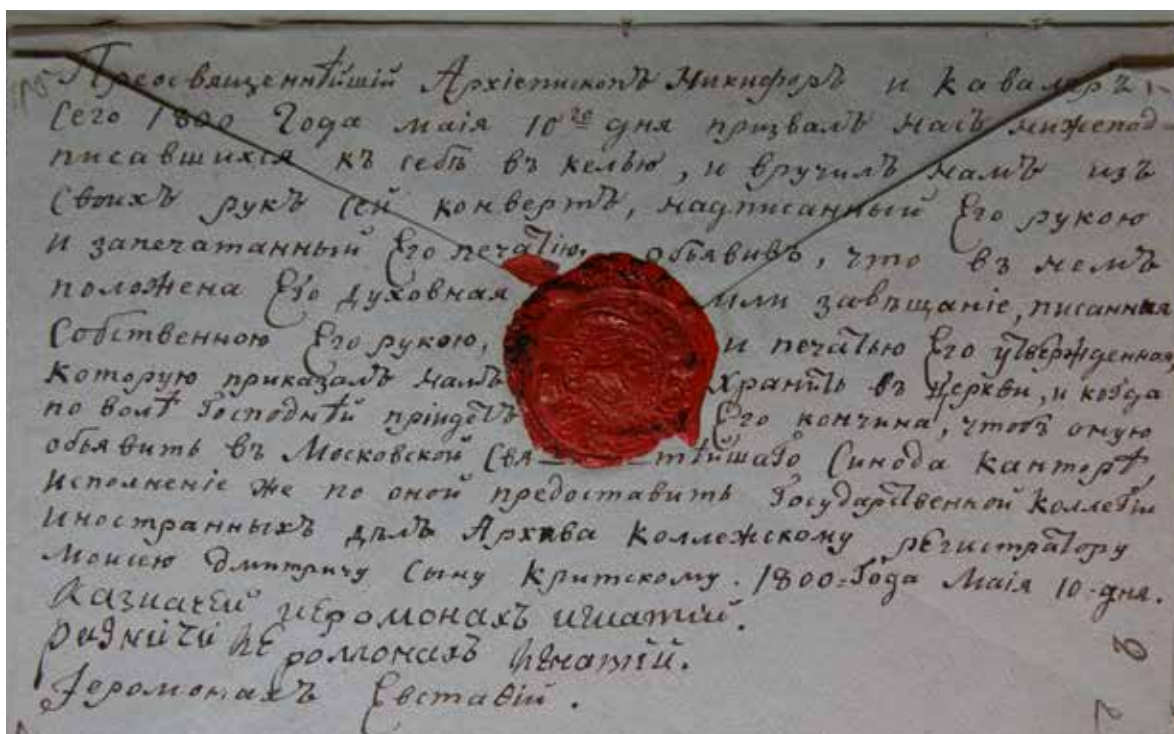 Преосвященнѣйшій Архіепископъ Никифоръ и Кавалеръ,
сего 1800 года маія 10го дня призвалъ насъ нижепод
писавшихся къ себѣ въ келью, и вручилъ намъ изъ
своихъ рукъ сей конвертъ, надписанный Его рукою
и запечатанный Его печатію, объявивъ, что въ немъ
положена Его духовная или завѣщаніе, писанная
собственною Его рукою, и печатью Его утвержденная,
которую приказалъ намъ хранить въ церкви, и когда
по волѣ Господнѣй пріидетъ Его кончина, чтобъ оную
объявить въ Московской Свя тѣйшаго Синода Канторѣ,
исполненіе же по оной предоставить Государственной Коллегіи
иностранныхъ дѣлъ Архива Коллежскому регистратору
Моисею Дмитричу сыну Критскому. 1800=года Маія 10-дня.
Казначей иеромонахъ игнатій.
иеромонахъ игнатій.
Іеромонахъ Евставій.